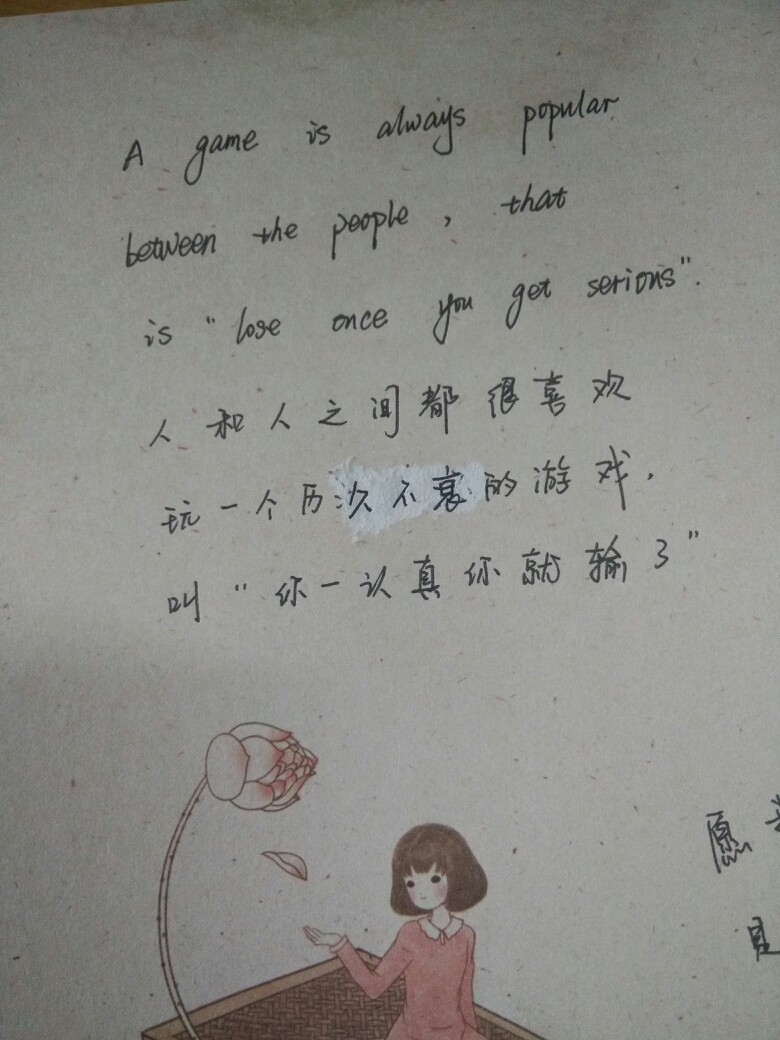 A game is always popular
between the people, that
is "lose once you get serious".
人和人之间都很喜欢
玩一个历次不衰的游戏,
叫"你一认真你就输了"
愿